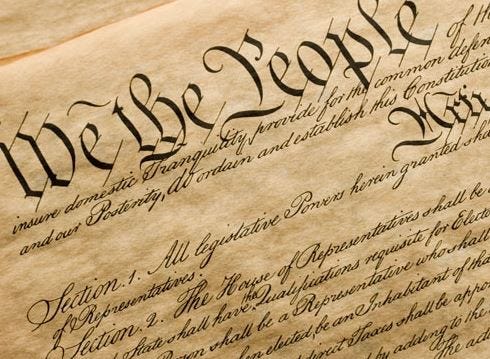 We the People of th
insure domestic Tranquility, provide for the common defen
and our Posterity, do ordain and establish this Constitution
Section. 1. All legislative Powers herein granted sha
of Representatives.
Section. 2. The House of Representatives shall be
State shall have the Qualifications requisite for Elector
shall be a Representative who shall
when elected, be an Inhabitant of tha
direct Taxes shall be appo
by adding to the